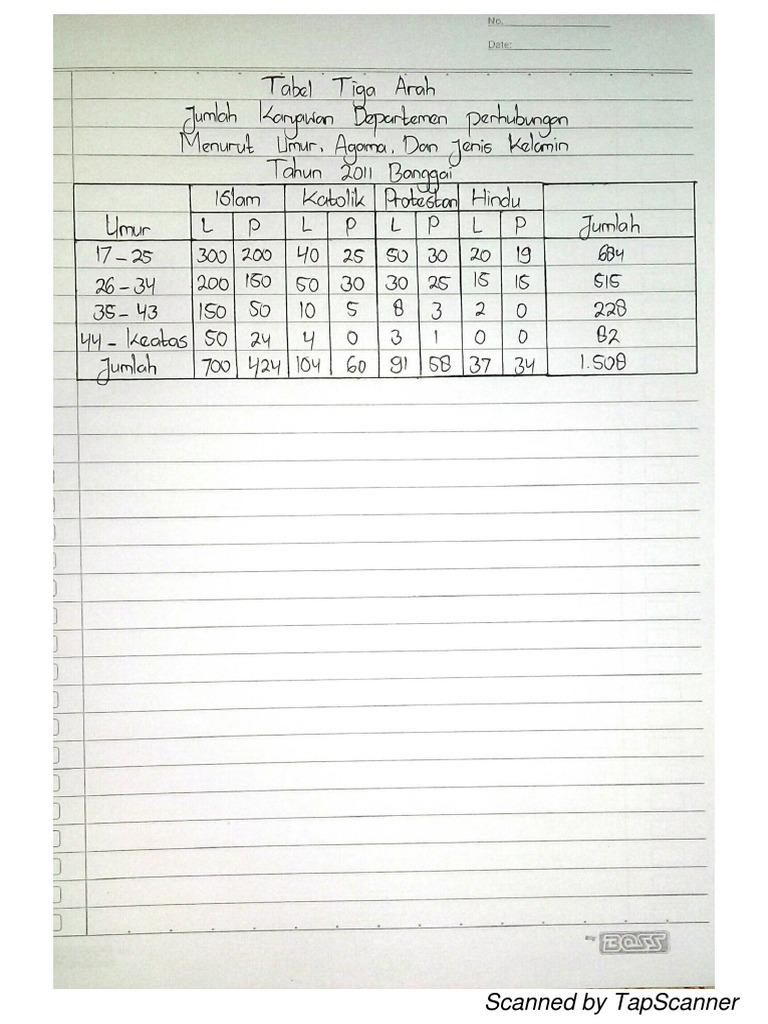 No.
Date:
Tabel Tiga Arah
Jumlah Karyawan Departemen perhubungan
Menurut Umur, Agama, Dan Jenis Kelamin
Tahun 2011 Banggai
Islam Katolik Protestan Hindu
Umur L P L P L P L P Jumlah
17-25 300 200 40 25 50 30 20 19 684
26-34 200 150 50 30 30 25 15 15 515
35-43 150 50 10 5 8 3 2 0 228
44-Keatas 50 24 4 0 3 1 0 0 82
Jumlah 700 424 104 60 91 58 37 34 1.508
BOSS
Scanned by TapScanner